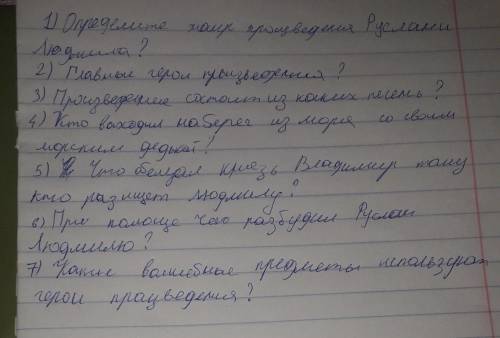 1) Определите жанр произведения Руслан и
Людмила?
2) Главные герои произведения?
3) Произведение состоит из каких песень?
4) Кто выходил на берег из моря со своим
морским дядькай?
5) Что обещал князь Владимир тому
кто разищет Людмилу?
6) При помоще чего разбудил Руслан
Людмилю?
7) Какие волшебные предметы используют
герои працведения?